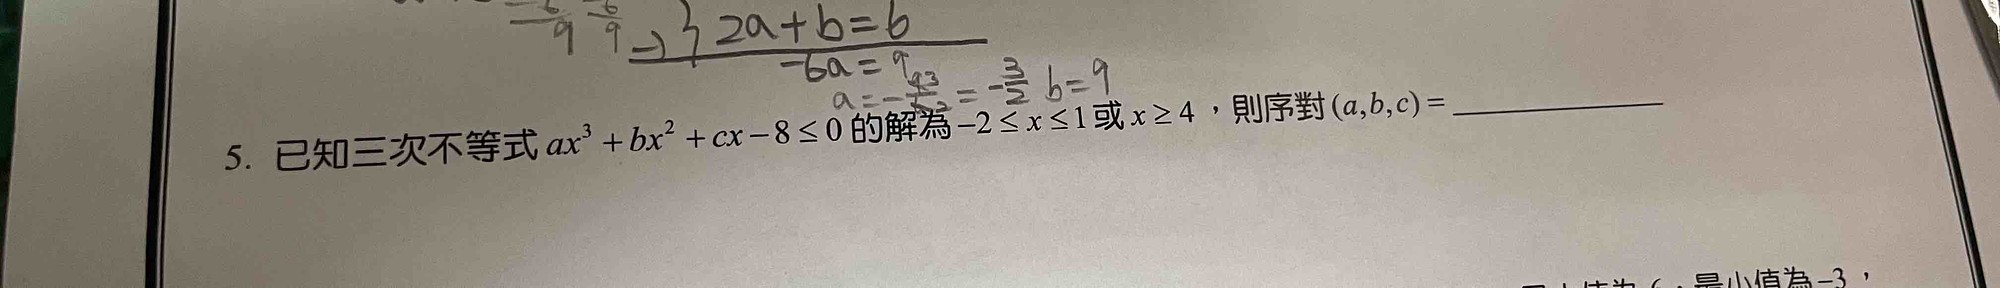 →} 2a+b=6
-6a=9
a=- = -3/2 b=9
5. 已知三次不等式 ax³+bx²+cx-8≤0 的解為 -2≤x≤1 或 x≥4,則序對 (a,b,c)=
最小值為-3,